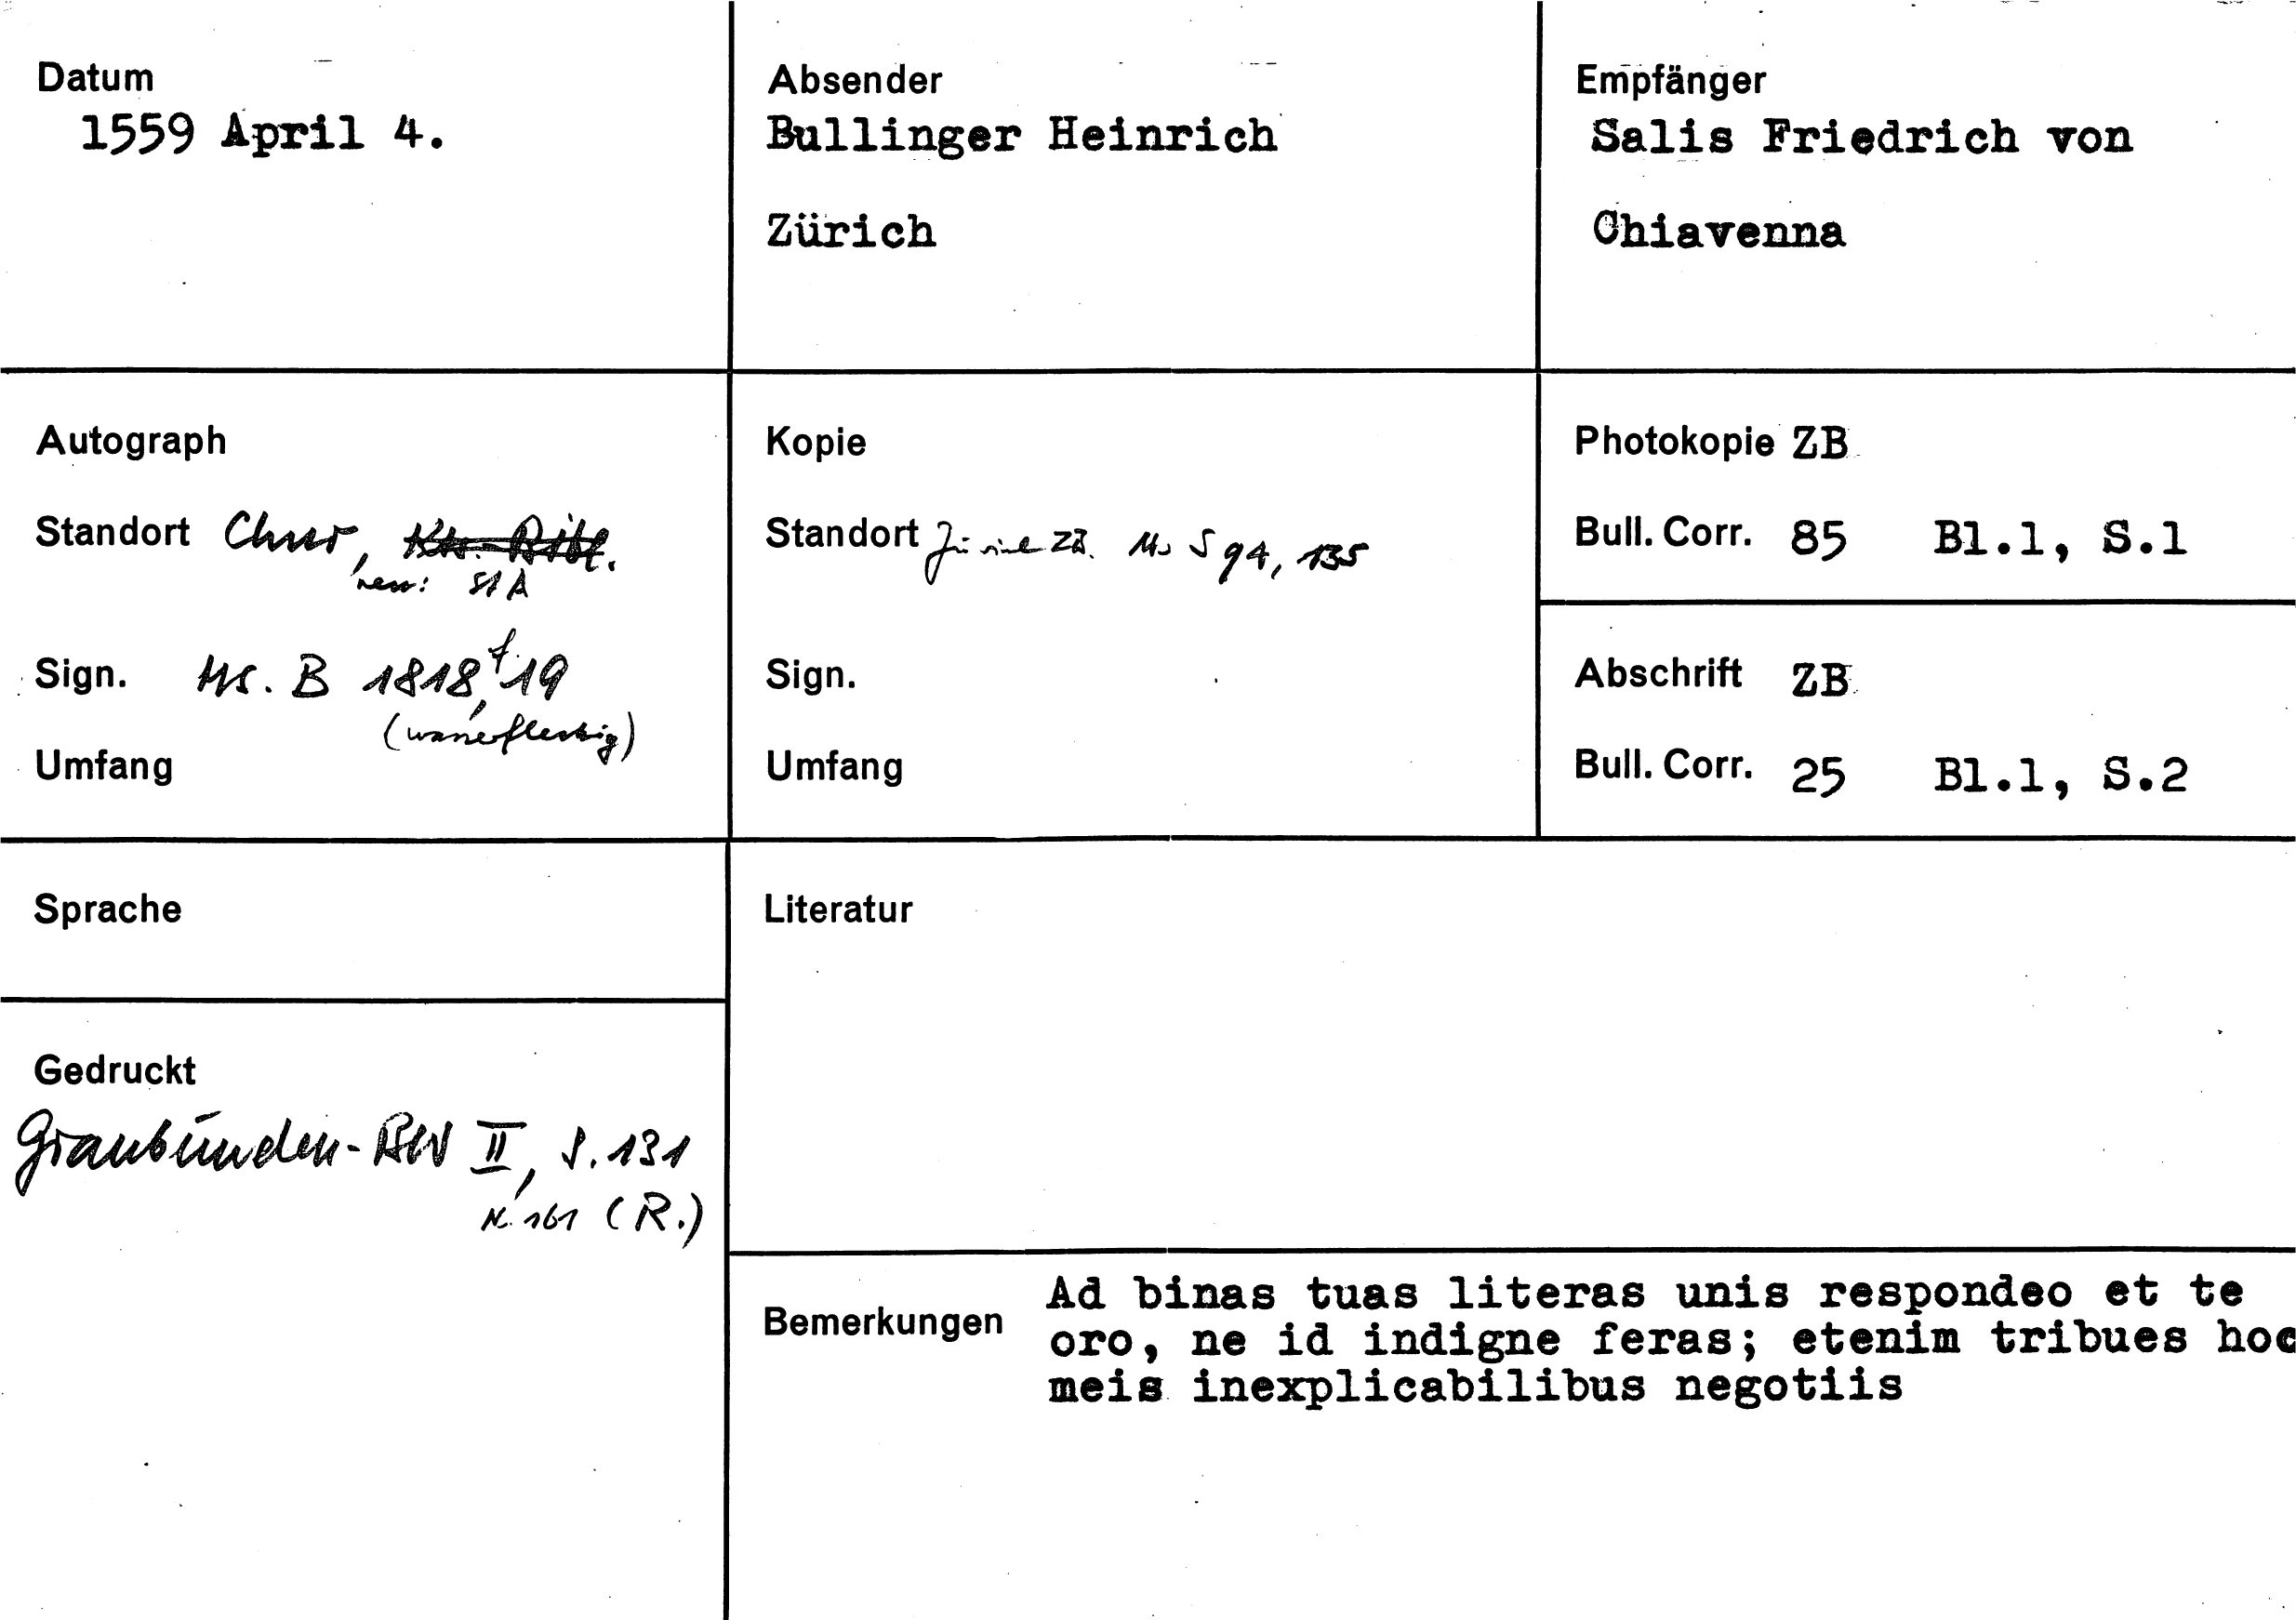 Datum
1559 April 4.
Absender
Bullinger Heinrich
Zürich
Empfänger
Salis Friedrich von
Chiavenna
Autograph
Standort Chur, Kts. Bibl.
neu: StA
Sign. Ms. B 1818, f 19
(wasserfleckig)
Umfang
Kopie
Standort Zürich ZB. Ms S 94, 135
Sign.
Umfang
Photokopie ZB
Bull. Corr. 85 Bl.1, S.1
Abschrift ZB
Bull. Corr. 25 Bl.1, S.2
Sprache
Gedruckt
Graubünden-BW II, S. 131
N. 161 (R.)
Literatur
Bemerkungen
Ad binas tuas literas unis respondeo et te
oro, ne id indigne feras; etenim tribues hoc
meis inexplicabilibus negotiis